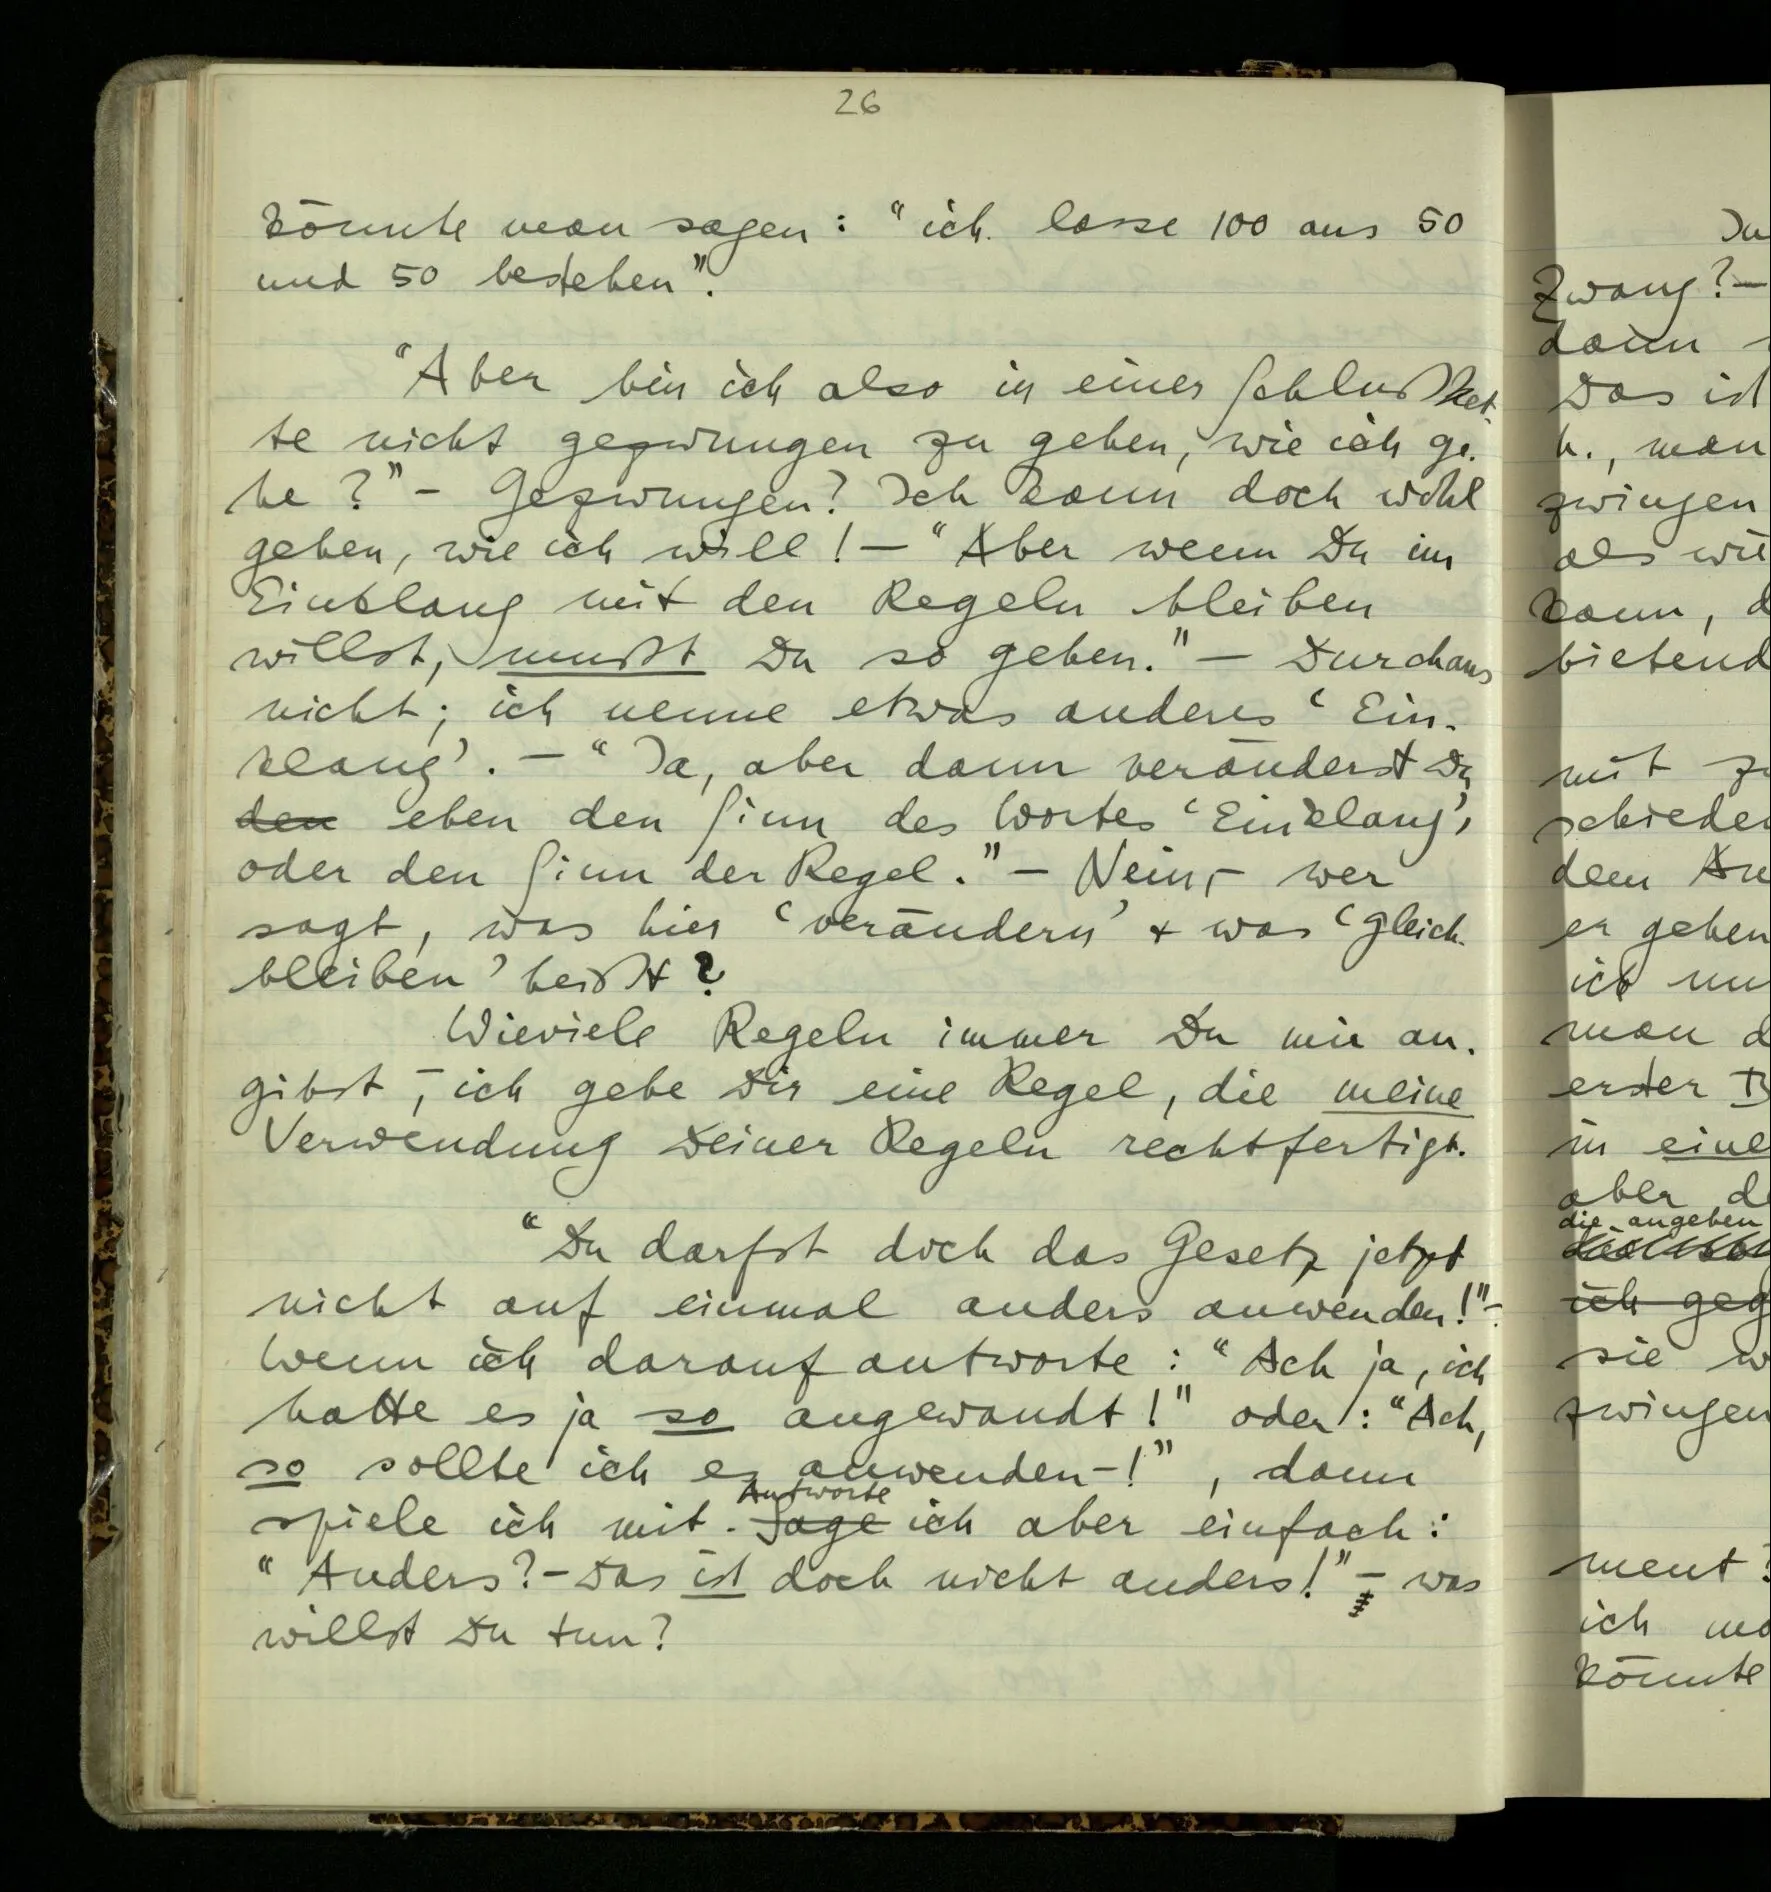 26
könnte man sagen: "ich lasse 100 aus 50
und 50 bestehen".
"Aber bin ich also in einer Schlußket-
te nicht gezwungen zu gehen, wie ich ge-
he?" – Gezwungen? Ich kann doch wohl
gehen, wie ich will! – "Aber wenn Du im
Einklang mit den Regeln bleiben
willst, mußt Du so gehen." – Durchaus
nicht; ich nenne etwas anderes 'Ein-
klang'. – "Ja, aber dann veränderst Du
den eben den Sinn des Wortes 'Einklang',
oder den Sinn der Regel." – Nein, – wer
sagt, was hier 'verändern' + was 'gleich-
bleiben' heißt?
Wieviele Regeln immer Du mir an-
gibst, – ich gebe Dir eine Regel, die meine
Verwendung Deiner Regeln rechtfertigt.
"Du darfst doch das Gesetz jetzt
nicht auf einmal anders anwenden!" –
Wenn ich darauf antworte: "Ach ja, ich
hatte es ja so angewandt!" oder: "Ach,
so sollte ich es anwenden –!", dann
Antworte
spiele ich mit. Sage ich aber einfach:
"Anders? – Das ist doch nicht anders!" – was
willst Du tun?
Zwang? –
dann
Das ist
h., man
zwingen
als wie
kann, d
bietend
mit
schieden
dem
er gehen
ich
man d
erster
in eine
aber
die angeben
ich geg
sie w
zwingen
ment?
ich
könnte